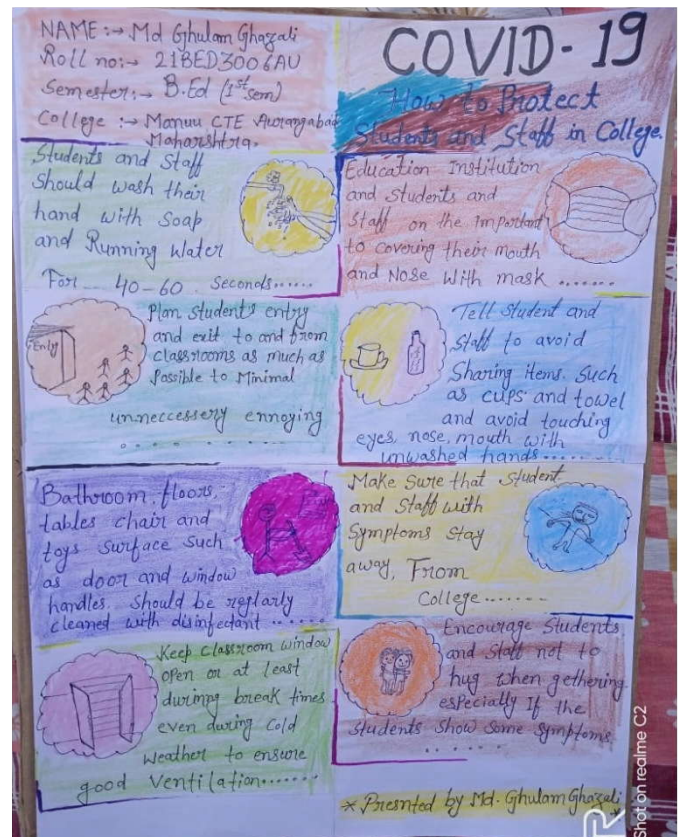 NAME :→ Md Ghulam Ghazali
Roll no:→ 21BED3006AU
Semester:→ B.Ed (1st sem)
College :→ Manuu CTE Aurangabad
Maharshtra.
COVID-19
How to Protect
Students and Staff in College.
Students and Staff
Should wash their
hand with Soap
and Running Water
For .... 40-60 . Seconds......
Education Institution
and Students and
Staff on the Important
to covering their Mouth
and Nose With mask .......
Entry
Plan Student's entry
and exit to and from
classrooms as much as
Possible to Minimal
unneccessery ennoying
. . . . . . . . .
Tell Student and
Staff to avoid
Sharing items. Such
as cups and towel
and avoid touching
eyes, nose, mouth with
unwashed hands.........
Bathroom, floors,
tables chair and
toys Surface Such
as door and window
handles. Should be reglarly
cleaned with disinfectant ......
Make Sure that Student
and Staff with
Symptoms Stay
away, From
College.......
Keep Classroom window
open or at least
durimg break times
even during Cold
Weather to ensure
good Ventilation.......
Encourage Students
and Staff not to
hug when gethering.
especially If the
Students Show Some Symptoms
. . . . . .
* Presnted by Md. Ghulam Ghazali *
Shot on realme C2